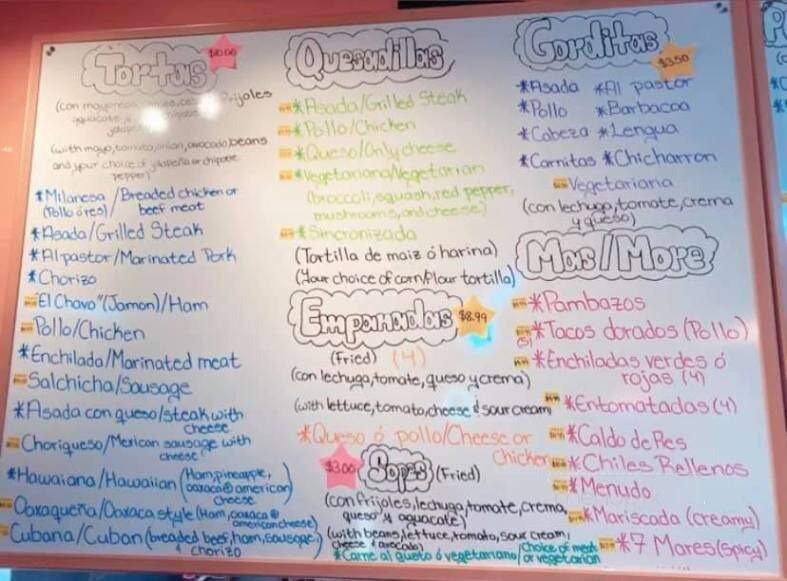 Tortas
$10.00
(con mayonesa, frijoles
aguacate y
(with mayo, tomato, onion, avocado, beans
and your choice of jalapeño or chipotle
pepper)
*Milanesa / Breaded chicken or
(Pollo ó res) / beef meat
*Asada/Grilled Steak
*Al pastor/Marinated Pork
*Chorizo
"El Chavo" (Jamon)/Ham
Pollo/Chicken
*Enchilada/Marinated meat
Salchicha/Sausage
*Asada con queso/Steak with
cheese
Choriqueso/Mexican sausage with
cheese
*Hawaiana/Hawaiian (Ham, pineapple,
oaxaca @ american
cheese
Oaxaqueña/Oaxaca style (Ham, oaxaca @
american cheese)
Cubana/Cuban (breaded beef, ham, sausage,
chorizo
Quesadillas
*Asada/Grilled Steak
*Pollo/Chicken
*Queso/Only cheese
*Vegetariana/Vegetarian
(broccoli, squash, red pepper,
mushrooms, and cheese)
*Sincronizada
(Tortilla de maiz ó harina)
(Your choice of corn/flour tortilla)
Empanadas
$8.99
(Fried) (4)
(con lechuga, tomate, queso y crema)
(with lettuce, tomato, cheese & sour cream
*Queso ó pollo/Cheese or
chicken
$3.00
Sopes (Fried)
(con frijoles, lechuga, tomate, crema,
queso y aguacate)
(with beans, lettuce, tomato, sour cream,
cheese & avocado)
*Carne al gusto ó vegetariano/Choice of meat
or vegetarian
Gorditas
$3.50
*Asada *Al pastor
*Pollo *Barbacoa
*Cabeza *Lengua
*Carnitas *Chicharron
Vegetariana
(con lechuga, tomate, crema
y queso)
Mas//More
*Pambazos
*Tacos dorados (Pollo)
(5)
*Enchiladas verdes ó
rojas (4)
*Entomatadas (4)
*Caldo de Res
*Chiles Rellenos
*Menudo
*Mariscada (creamy)
*7 Mares (spicy)